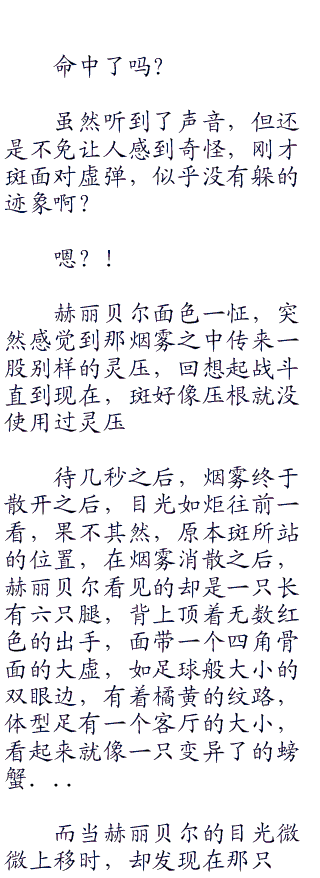 命中了吗？
虽然听到了声音，但还
是不免让人感到奇怪，刚才
斑面对虚弹，似乎没有躲的
迹象啊？
嗯？！
赫丽贝尔面色一怔，突
然感觉到那烟雾之中传来一
股别样的灵压，回想起战斗
直到现在，斑好像压根就没
使用过灵压
待几秒之后，烟雾终于
散开之后，目光如炬往前一
看，果不其然，原本斑所站
的位置，在烟雾消散之后，
赫丽贝尔看见的却是一只长
有六只腿，背上顶着无数红
色的出手，面带一个四角骨
面的大虚，如足球般大小的
双眼边，有着橘黄的纹路，
体型足有一个客厅的大小，
看起来就像一只变异了的螃
蟹．．．
而当赫丽贝尔的目光微
微上移时，却发现在那只